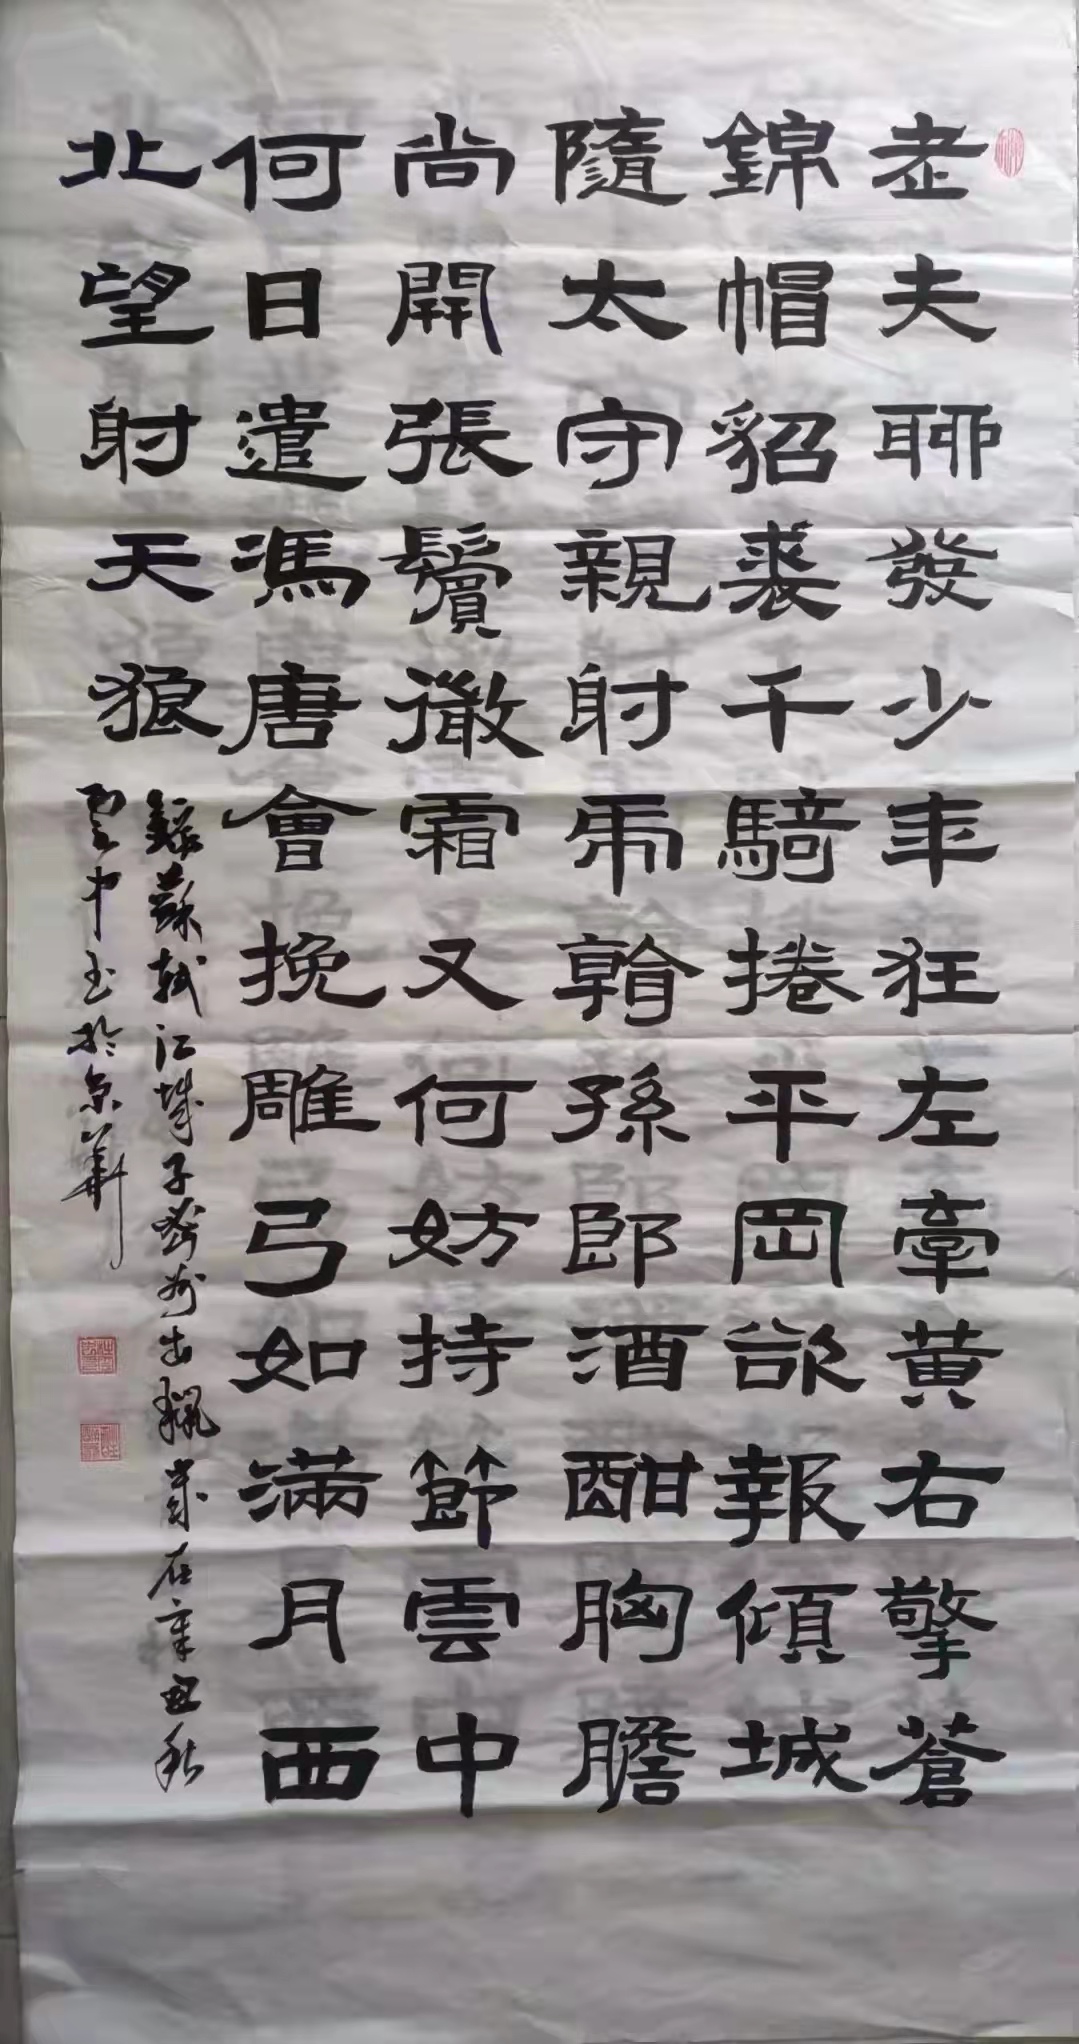 老夫聊發少年狂左牽黃右擎蒼
錦帽貂裘千騎捲平岡欲報傾城
隨太守親射虎看孫郎酒酣胸膽
尚開張鬢微霜又何妨持節雲中
何日遣馮唐會挽雕弓如滿月西
北望射天狼
錄蘇軾江城子密州出獵歲在辛丑秋
雲中玉於京華